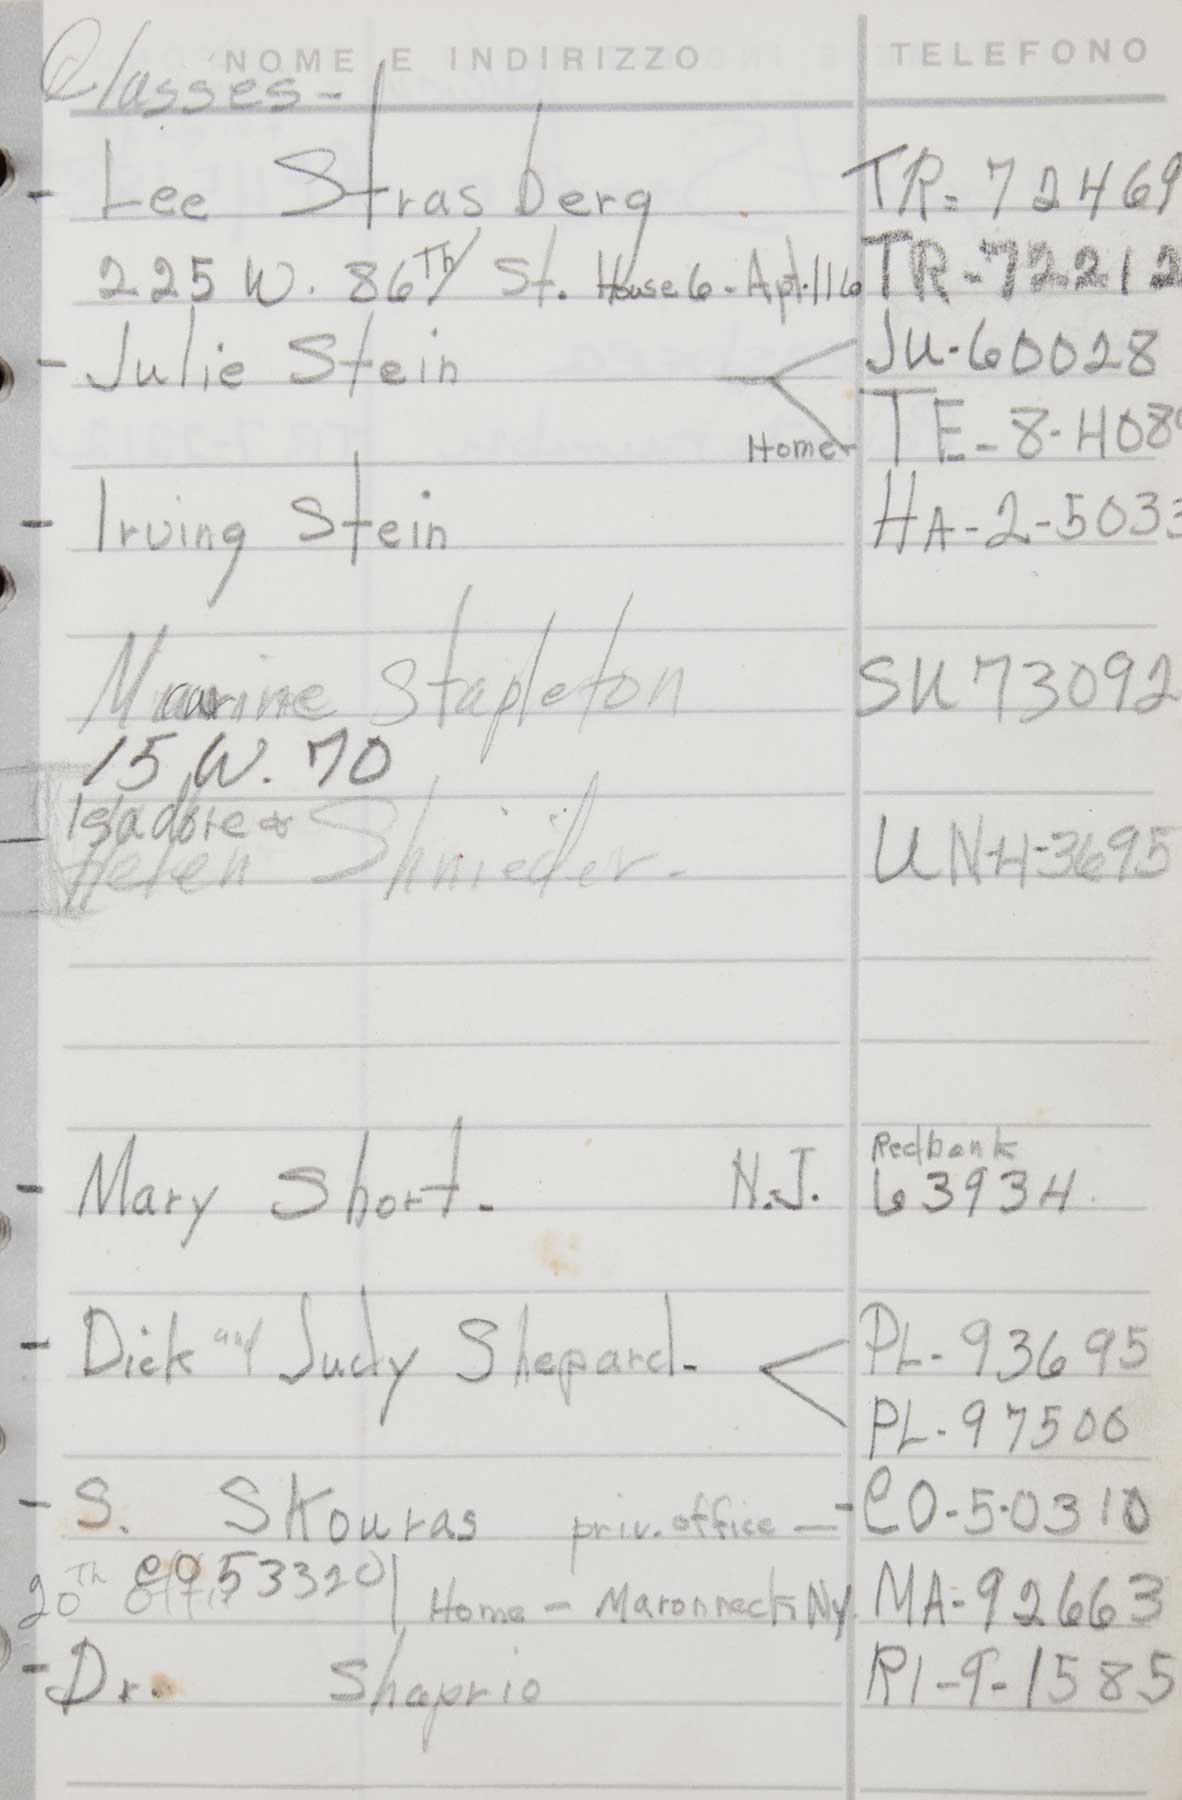 NOME E INDIRIZZO TELEFONO
Classes -
- Lee Strasberg TR-72469
225 W. 86Th St. House 6 - Apt. 116 TR-72212
- Julie Stein JU-60028
Home TE-8-408
- Irving Stein HA-2-5033
Maurine Stapleton SU 73092
15 W. 70
Isadore &
Helen Shnieder - UN-4-3695
Redbank
- Mary Short. N.J. 63934.
- Dick and Judy Shepard - PL-93695
PL-97500
- S. Skouras priv. office - CO-5-0310
20Th CO 53320 Home - Maronneck Ny. MA-92663
- Dr. Shaprio RI-9-1585